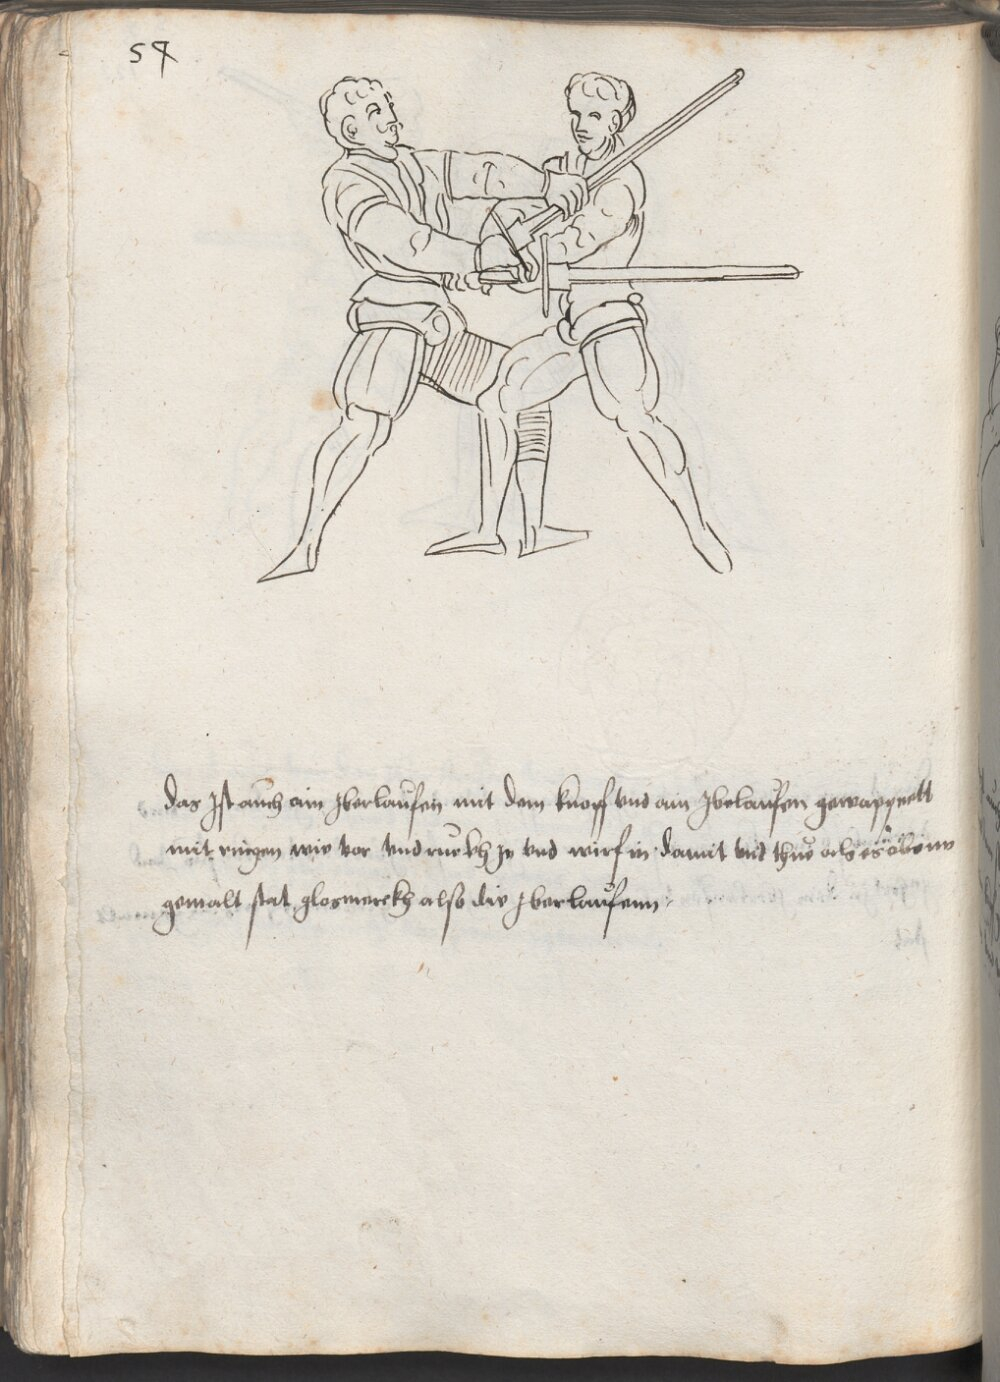 57
das Jst auch ain Jberlaufen mit dem knopff vnd ain Jberlaufen gewappnett
mit ringen wie vor vnd ruckh Jn vnd wirf in damit vnd thue als es oben
gemalt stat glosmerckh also die Jberlaufenn